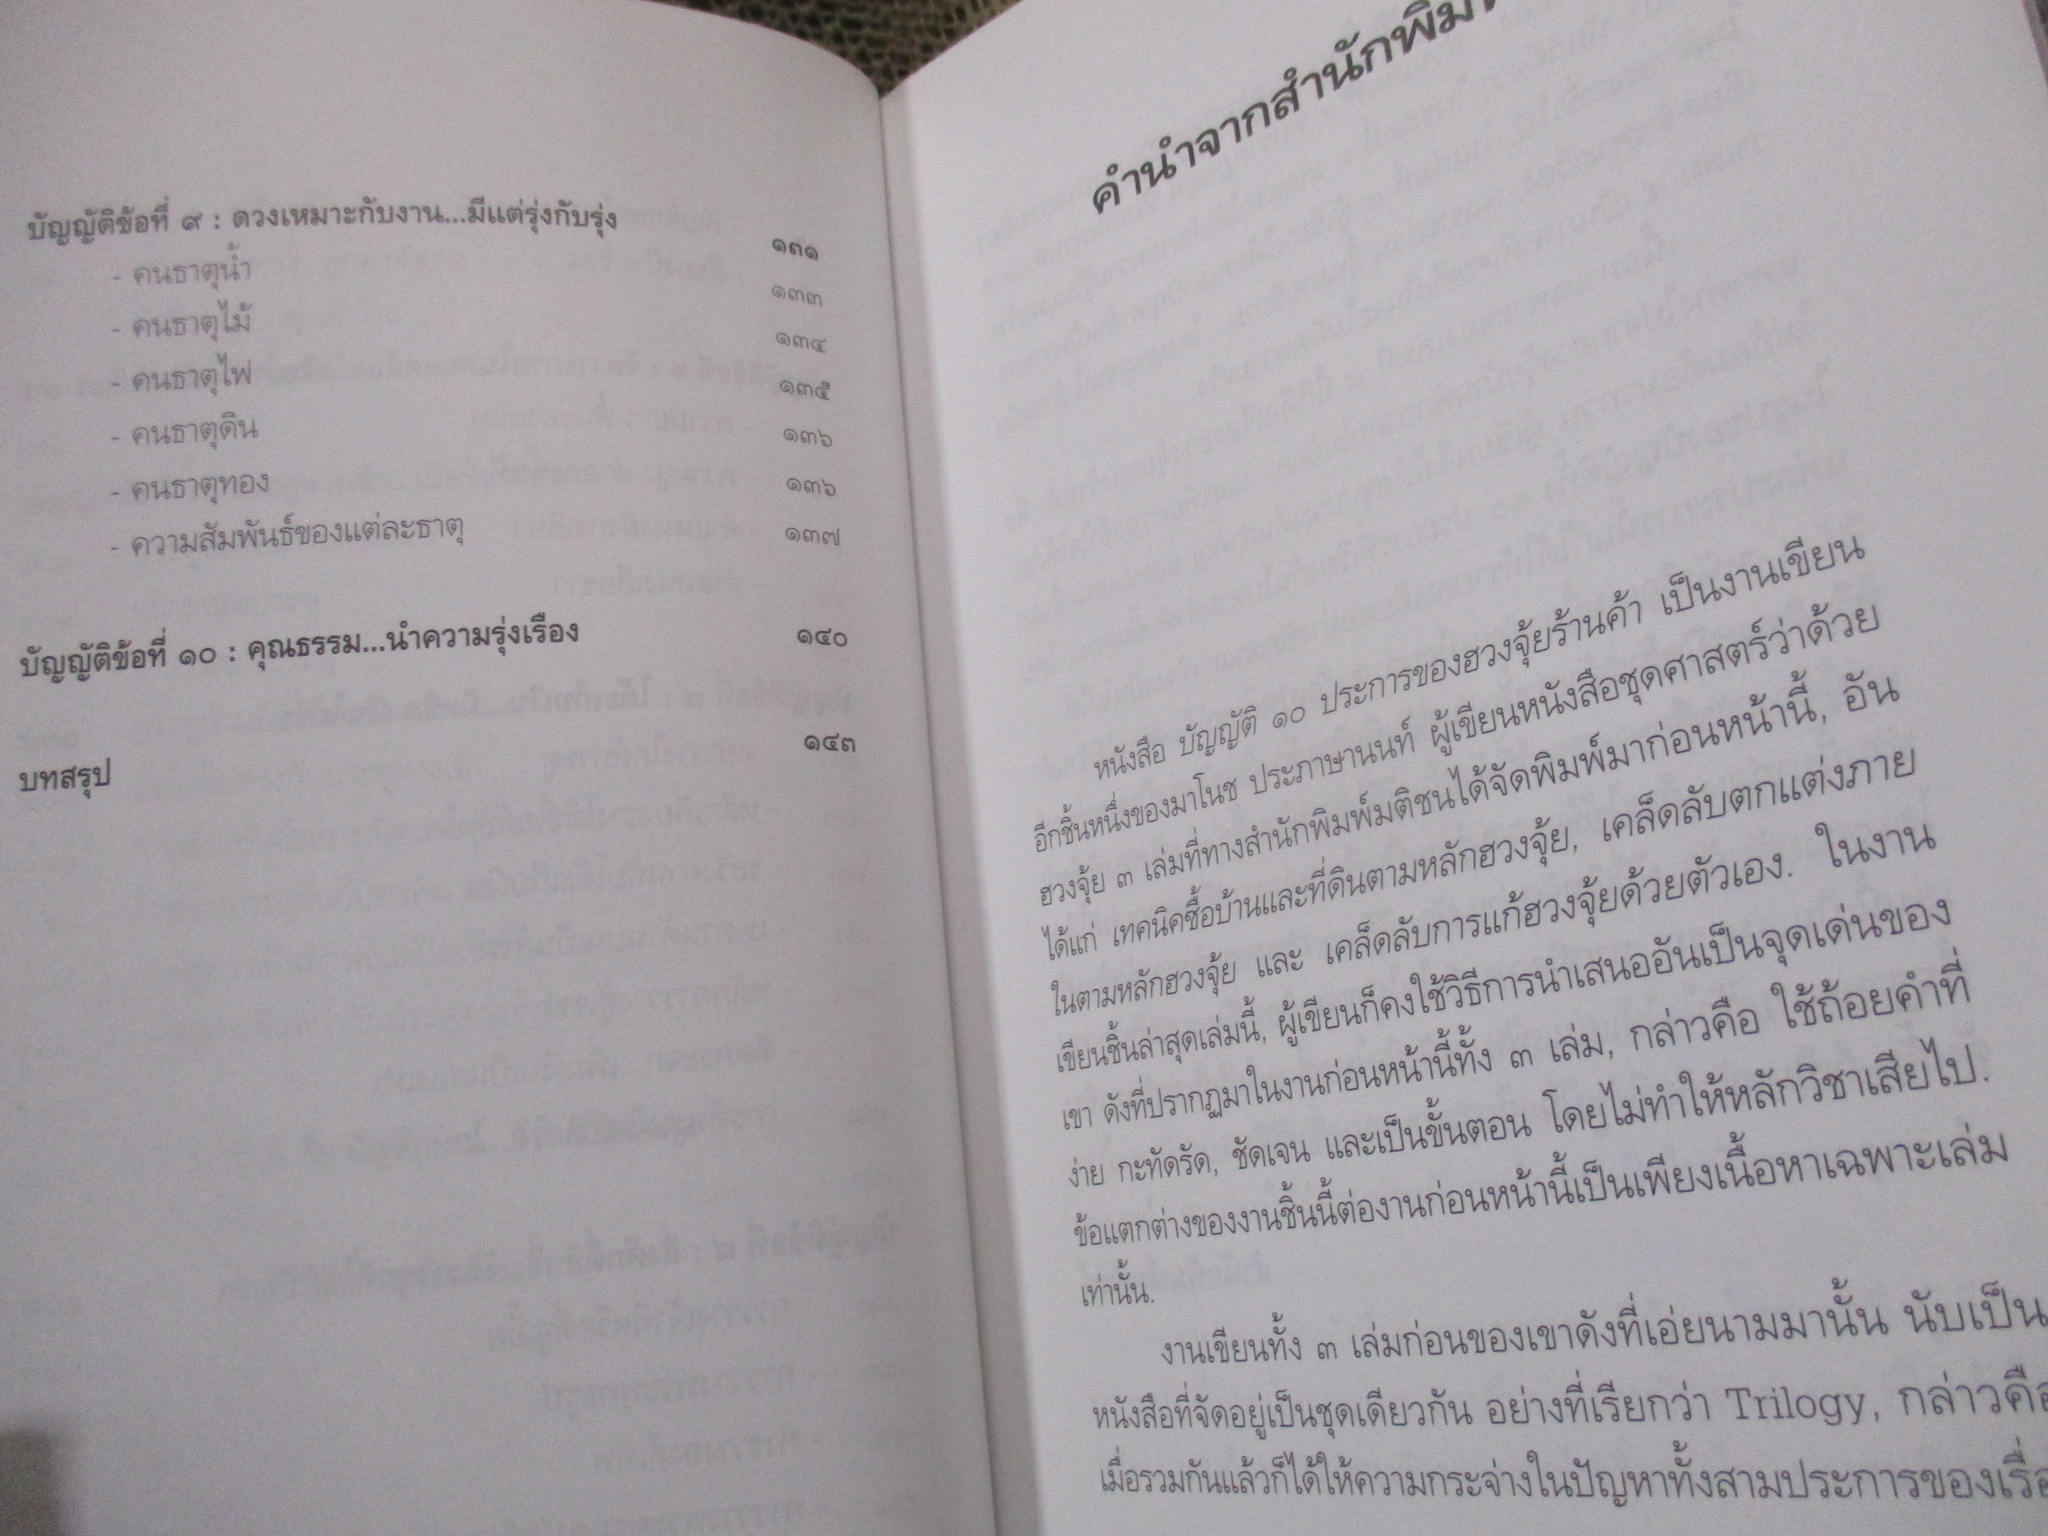 บัญญัติข้อที่ ๙ : ดวงเหมาะกับงาน...มีแต่รุ่งกับรุ่ง ๑๓๑
- คนธาตุน้ำ ๑๓๓
- คนธาตุไม้ ๑๓๔
- คนธาตุไฟ ๑๓๕
- คนธาตุดิน ๑๓๖
- คนธาตุทอง ๑๓๖
- ความสัมพันธ์ของแต่ละธาตุ ๑๓๗
บัญญัติข้อที่ ๑๐ : คุณธรรม...นำความรุ่งเรือง ๑๔๐
บทสรุป ๑๔๓
คำนำจากสำนักพิมพ์
หนังสือ บัญญัติ ๑๐ ประการของฮวงจุ้ยร้านค้า เป็นงานเขียน
อีกชิ้นหนึ่งของมาโนช ประภาษานนท์ ผู้เขียนหนังสือชุดศาสตร์ว่าด้วย
ฮวงจุ้ย ๓ เล่มที่ทางสำนักพิมพ์มติชนได้จัดพิมพ์มาก่อนหน้านี้, อัน
ได้แก่ เทคนิคซื้อบ้านและที่ดินตามหลักฮวงจุ้ย, เคล็ดลับตกแต่งภาย
ในตามหลักฮวงจุ้ย และ เคล็ดลับการแก้ฮวงจุ้ยด้วยตัวเอง. ในงาน
เขียนชิ้นล่าสุดเล่มนี้, ผู้เขียนก็คงใช้วิธีการนำเสนออันเป็นจุดเด่นของ
เขา ดังที่ปรากฏมาในงานก่อนหน้านี้ทั้ง ๓ เล่ม, กล่าวคือ ใช้ถ้อยคำที่
ง่าย กะทัดรัด, ชัดเจน และเป็นขั้นตอน โดยไม่ทำให้หลักวิชาเสียไป.
ข้อแตกต่างของงานชิ้นนี้ต่องานก่อนหน้านี้เป็นเพียงเนื้อหาเฉพาะเล่ม
เท่านั้น.
งานเขียนทั้ง ๓ เล่มก่อนของเขาดังที่เอ่ยนามมานั้น นับเป็น
หนังสือที่จัดอยู่เป็นชุดเดียวกัน อย่างที่เรียกว่า Trilogy, กล่าวคือ
เมื่อรวมกันแล้วก็ได้ให้ความกระจ่างในปัญหาทั้งสามประการของเรื่อ